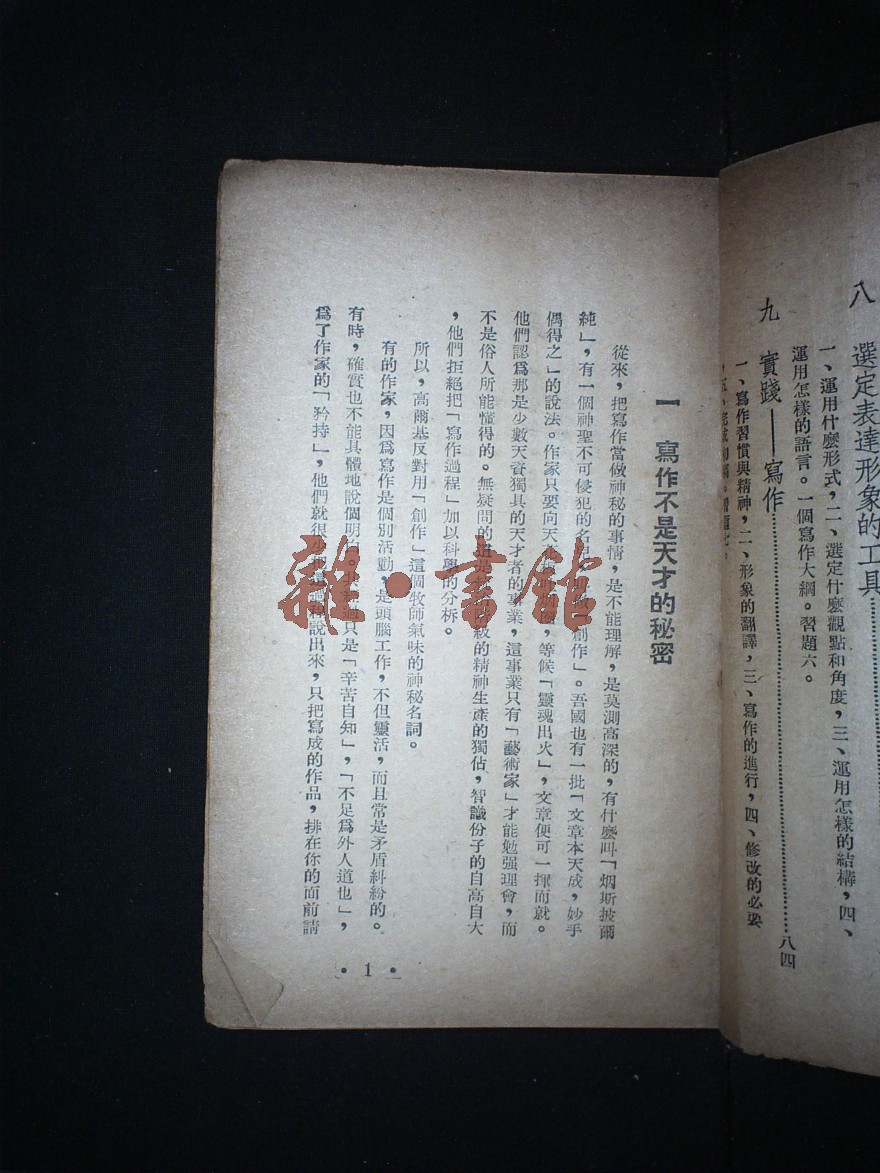 八　選定表達形象的工具…………
一、運用什麽形式，二、選定什麽觀點和角度，三、運用怎樣的結構，四、
運用怎樣的語言。一個寫作大綱。習題六。
九　實踐——寫作…………八四
一、寫作習慣與精神，二、形象的翻譯，三、寫作的進行，四、修改的必要
一　寫作不是天才的秘密
從來，把寫作當做神秘的事情，是不能理解，是莫測高深的，有什麽叫「烟斯披爾
純」，有一個神聖不可侵犯的名「創作」。吾國也有一批「文章本天成，妙手
偶得之」的說法。作家只要向天，等候「靈魂出火」，文章便可一揮而就。
他們認爲那是少數天資獨具的天才者的事業，這事業只有「藝術家」才能勉强理會，而
不是俗人所能懂得的。無疑問的是級的精神生產的獨佔，智識份子的自高自大
，他們拒絕把「寫作過程」加以科學的分析。
所以，高爾基反對用「創作」這個牧師氣味的神秘名詞。
有的作家，因爲寫作是個別活動，是頭腦工作，不但靈活，而且常是矛盾糾紛的。
有時，確實也不能具體地說個明只是「辛苦自知」，「不足爲外人道也」，
爲了作家的「矜持」，他們就很說出來，只把寫成的作品，排在你的面前請
• 1 •
雜·書館